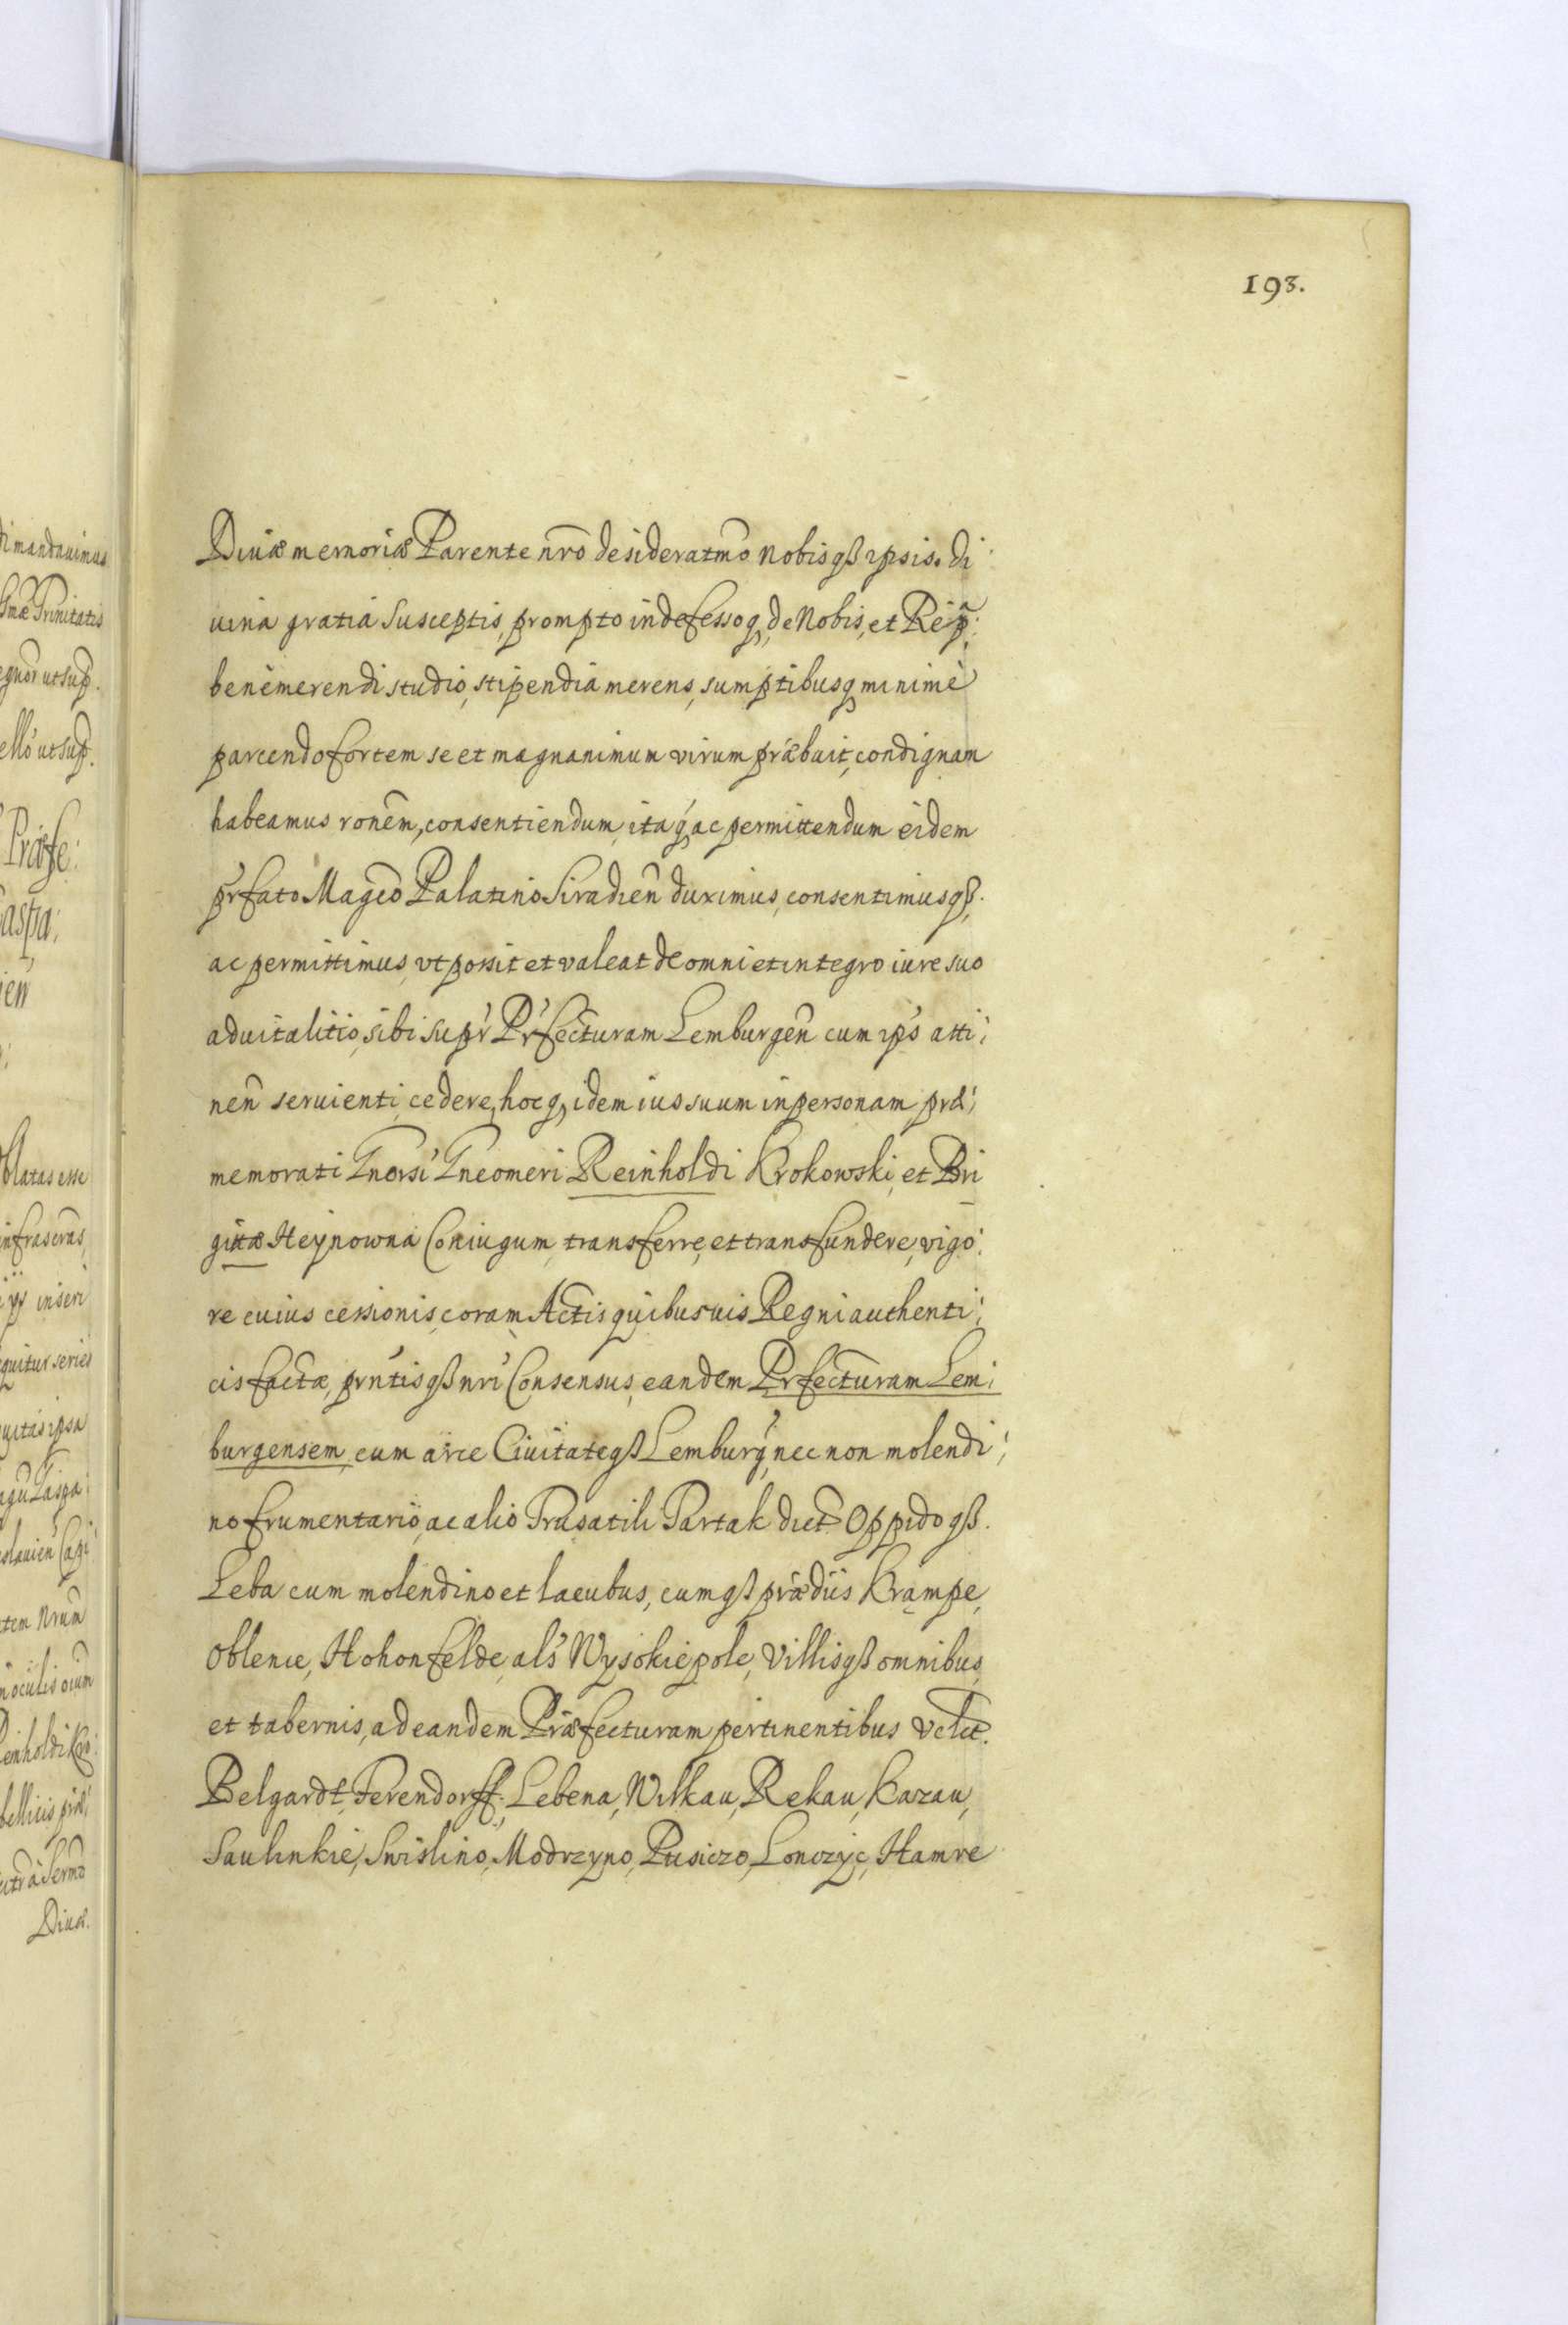 193.
Diuæ memoriæ Parente nr̃o desideratm̃o Nobisqß ipsis. di
uina gratia susceptis, prompto indefessoq, de Nobis, et Reip̃:
benemerendi studio, stipendia merens, sumptibusq minimè
parcendo fortem se et magnanimum virum præbuit, condignam
habeamus ron̄em, consentiendum, itaq, ac permittendum eidem
pr̕fato Mag̃co Palatino Siradien̄ duximus, consentimusqß.
ac permittimus, vt possit et valeat de omni et integro iure suo
aduitalitio, sibi supr̕ Pr̕fecturam Lemburgen̄ cum ip̕s atti;
nen̄ seruienti, cedere, hocq, idem ius suum in personam præ;
memorati Gnorsi̕ Gneomeri Reinholdi Krokowski, et Bri
gittæ Heynowna Coniugum, transferre, et transfundere, vigo:
re cuius cessionis, coram Actis quibusuis Regni authenti;
cis factæ, prn̕tisqß nri̕ Consensus, eandem Pr̕fecturam Lem;
burgensem, cum arce Ciuitateqß Lemburg̕, nec non molendi;
no frumentario, ac alio Trusatili Partak dict̃ Oppidoqß.
Leba cum molendino et lacubus, cumqß prædiis Krąmpe,
Oblenie, Hohonfelde, al̕s Wysokiepole, Villisqß omnibus,
et tabernis, ad eandem Præfecturam pertinentibus Velut̃.
Belgardt, Ferendorff, Lebena, Wilkau, Rekau, Kazau,
Saulinkie, Swislino, Modrzyno, Pusiczo, Lonczyc, Hamre